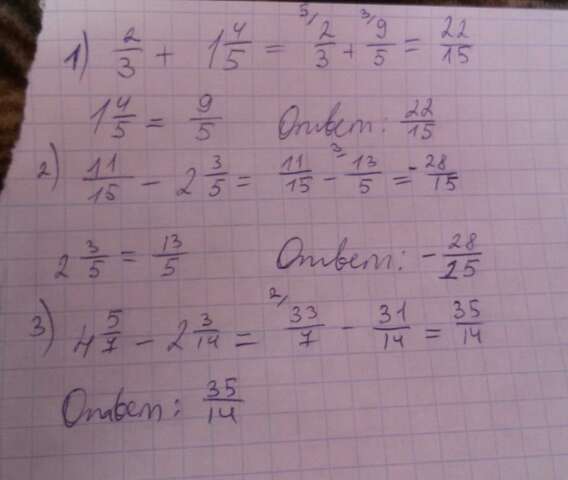 1) 2/3 + 1 4/5 = 5/ 2/3 + 3/ 9/5 = 22/15
1 4/5 = 9/5 Ответ: 22/15
2) 11/15 - 2 3/5 = 11/15 - 3/ 13/5 = -28/15
2 3/5 = 13/5 Ответ: -28/15
3) 4 5/7 - 2 3/14 = 2/ 33/7 - 31/14 = 35/14
Ответ: 35/14